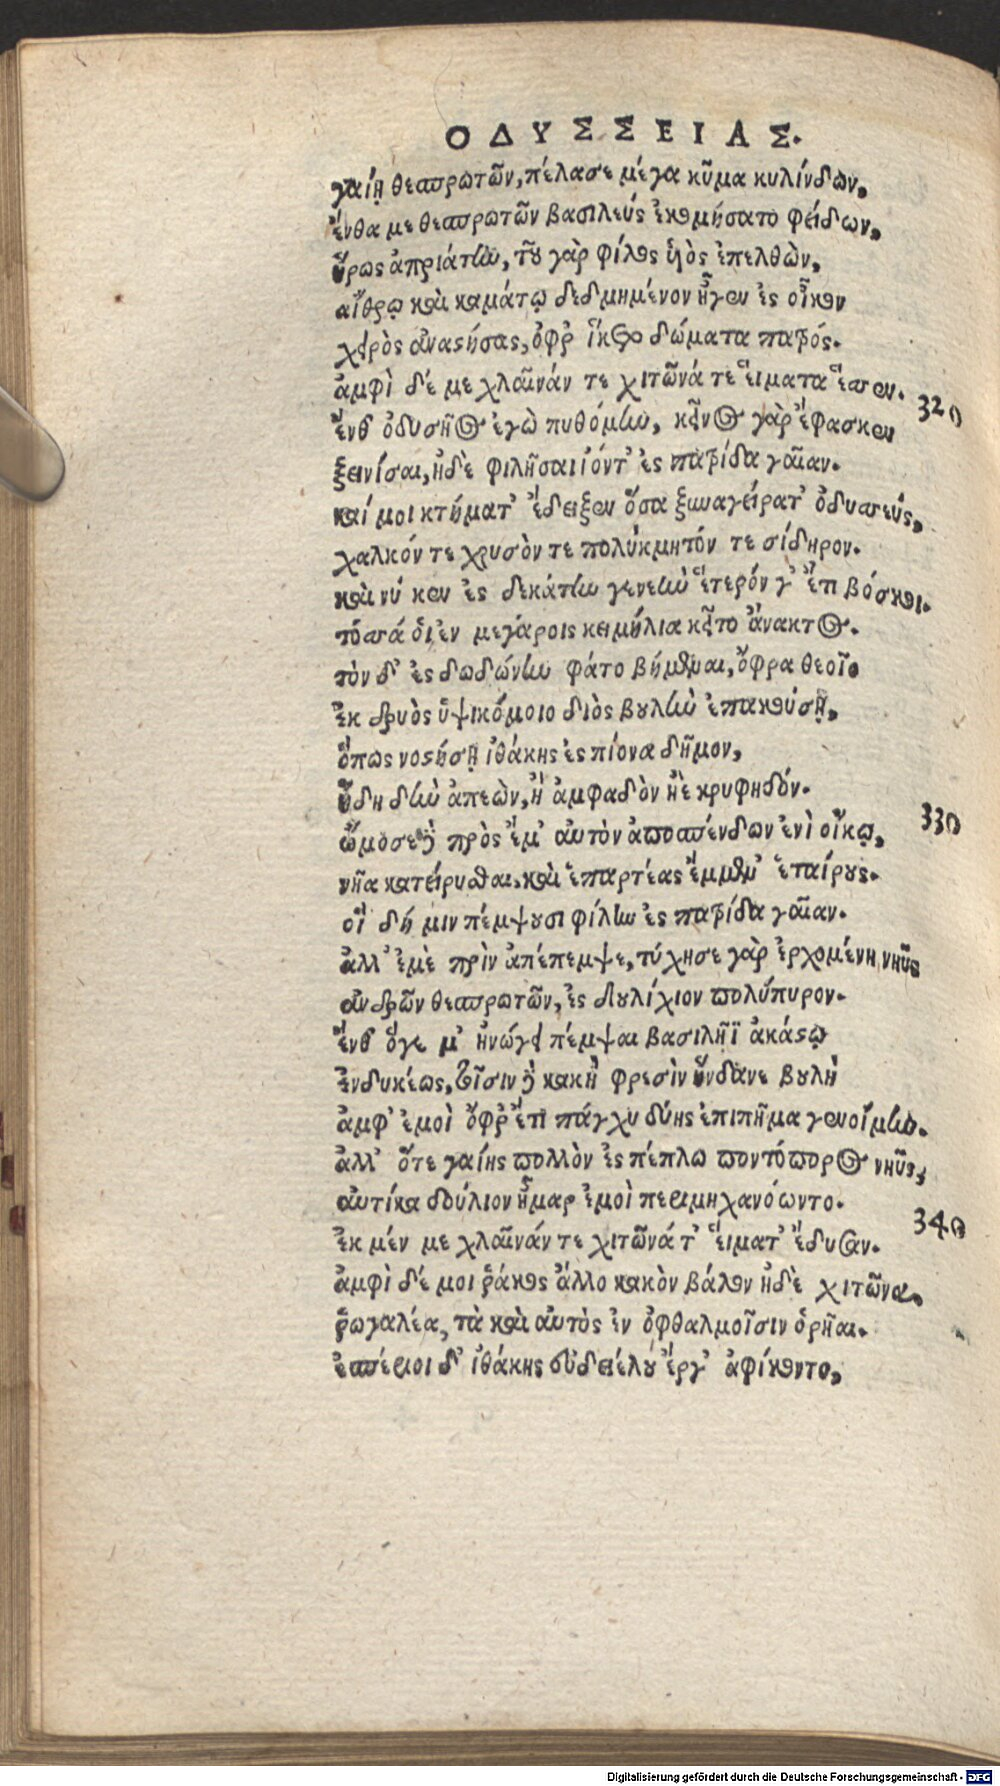 ΟΔΥΣΣΕΙΑΣ.
γαίῃ θεσπρωτῶν, πέλασε μέγα κῦμα κυλίνδων,
ἔνθα με θεσπρωτῶν βασιλεὺς ἐκομήσατο φείδων,
ἥρως ἀπριάτην, τοῦ γὰρ φίλος ὑὸς ἐπελθὼν,
αἴθρῳ καὶ καμάτῳ δεδμημένον ἦγεν ἐς οἶκον
χειρὸς ἀναστήσας, ὄφρ ἵκετο δώματα πατρός.
ἀμφὶ δέ με χλαῖνάν τε χιτῶνά τε εἵματα ἕσσεν.
320
ἔνθ ὀδυσῆος ἐγὼ πυθόμην, κεῖνος γὰρ ἔφασκεν
ξεινίσαι, ἠδὲ φιλῆσαι ἰόντ' ἐς πατρίδα γαῖαν.
καί μοι κτήματ' ἔδειξεν ὅσα ξυναγείρατ' ὀδυσσεύς,
χαλκόν τε χρυσόν τε πολύκμητόν τε σίδηρον.
καὶ νύ κεν ἐς δεκάτην γενεὴν ἕτερόν γ' ἔτι βόσκοι.
τόσσά οἱ ἐν μεγάροις κειμήλια κεῖτο ἄνακτος.
τὸν δ' ἐς δωδώνην φάτο βήμεναι, ὄφρα θεοῖο
ἐκ δρυὸς ὑψικόμοιο διὸς βουλὴν ἐπακούσῃ,
ὅπως νοστήσῃ ἰθάκης ἐς πίονα δῆμον,
ἤδη δὴν ἀπεὼν, ἢ ἀμφαδὸν ἠὲ κρυφηδόν.
330
ὤμοσε δὲ πρὸς ἔμ' αὐτὸν ἀποσπένδων ἐνὶ οἴκῳ,
νῆα κατείρυσθαι, καὶ ἐπαρτέας ἔμμεν' ἑταίρους.
οἳ δή μιν πέμψουσι φίλην ἐς πατρίδα γαῖαν.
ἀλλ' ἐμὲ πρὶν ἀπέπεμψε, τύχησε γὰρ ἐρχομένη νηῦς
ἀνδρῶν θεσπρωτῶν, ἐς δουλίχιον πολύπυρον.
ἔνθ ὅγε μ' ἠνώγει πέμψαι βασιλῆϊ ἀκάστῳ
ἐνδυκέως, τοῖσιν δὲ κακὴ φρεσὶν ἥνδανε βουλὴ
ἀμφ' ἐμοὶ ὄφρ ἔτι πάγχυ δύης ἐπὶ πῆμα γενοίμην.
ἀλλ' ὅτε γαίης πολλὸν ἐς πέπλω ποντόπορος νηῦς,
αὐτίκα δούλιον ἦμαρ ἐμοὶ περιμηχανόωντο.
340
ἐκ μέν με χλαῖνάν τε χιτῶνά τ' εἵματ' ἔδυσαν.
ἀμφὶ δέ μοι ῥάκος ἄλλο κακὸν βάλον ἠδὲ χιτῶνα.
ῥωγαλέα, τὰ καὶ αὐτὸς ἐν ὀφθαλμοῖσιν ὁρῆαι.
ἑσπέριοι δ' ἰθάκης εὐδειέλου ἔργ' ἀφίκοντο,
Digitalisierung gefördert durch die Deutsche Forschungsgemeinschaft - DFG